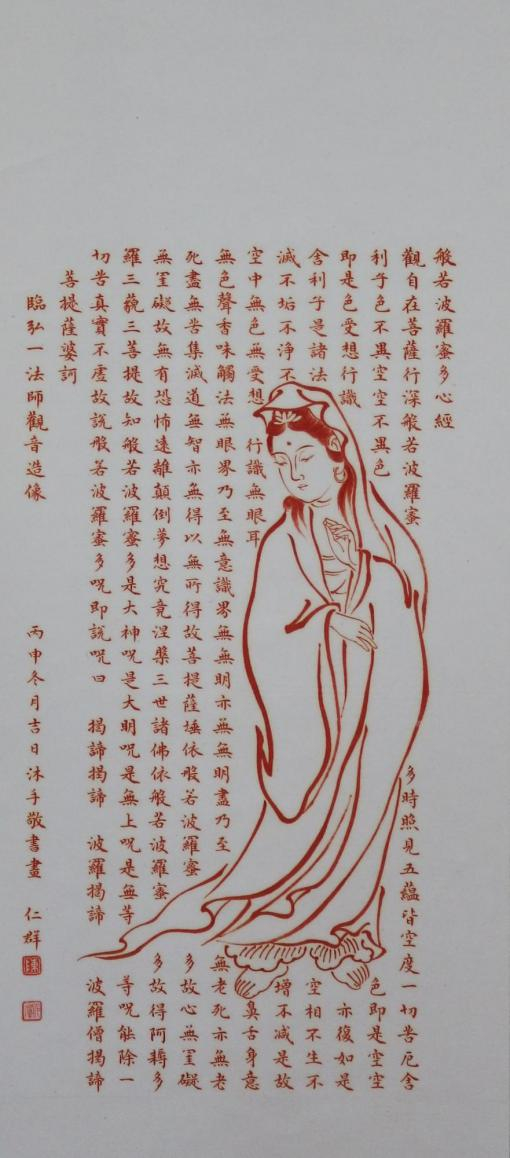 般若波羅蜜多心經
觀自在菩薩行深般若波羅蜜 多時照見五蘊皆空度一切苦厄舍
利子色不異空空不異色 色即是空空
即是色受想行識 亦復如是
舍利子是諸法 空相不生不
滅不垢不淨不 增不減是故
空中無色無受想 行識無眼耳 鼻舌身意
無色聲香味觸法無眼界乃至無意識界無無明亦無無明盡乃至 無老死亦無老
死盡無苦集滅道無智亦無得以無所得故菩提薩埵依般若波羅蜜 多故心無罣礙
無罣礙故無有恐怖遠離顛倒夢想究竟涅槃三世諸佛依般若波羅蜜 多故得阿耨多
羅三藐三菩提故知般若波羅蜜多是大神呪是大明呪是無上呪是無等 等呪能除一
切苦真實不虛故說般若波羅蜜多呪即說呪曰 揭諦揭諦 波羅揭諦 波羅僧揭諦
菩提薩婆訶
臨弘一法師觀音造像 丙申冬月吉日沐手敬書畫 仁群